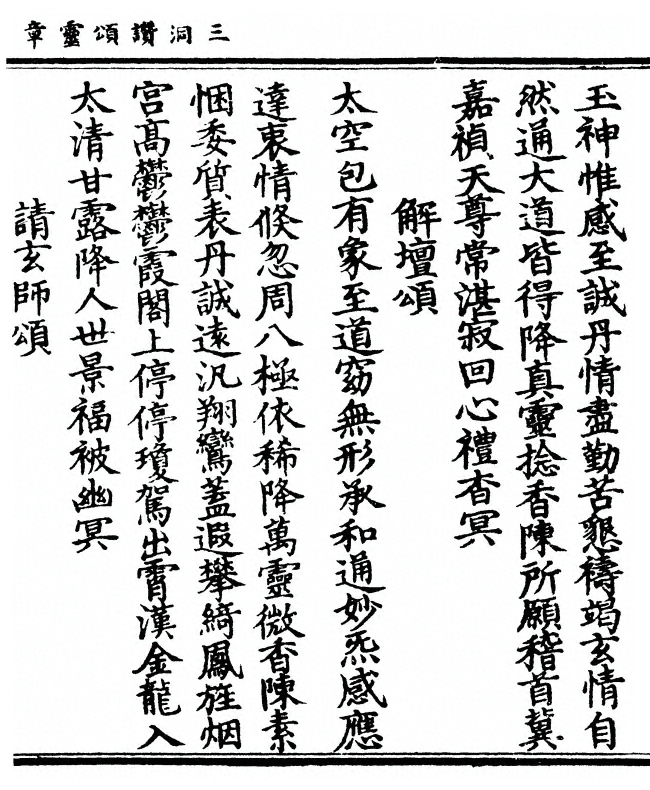 三洞讚頌靈章
玉神惟感至誠丹情盡勤苦懇禱竭玄情自
然通大道皆得降真靈捻香陳所願稽首冀
嘉禎天尊常湛寂回心禮杳冥
解壇頌
太空包有象至道窈無形承和通妙炁感應
達衷情倐忽周八極依稀降萬靈微香陳素
悃委質表丹誠遠汎翔鸞蓋遐攀綺鳳旌烟
宮高鬱鬱霞閣上停停瓊駕出霄漢金龍入
太清甘露降人世景福被幽冥
請玄師頌